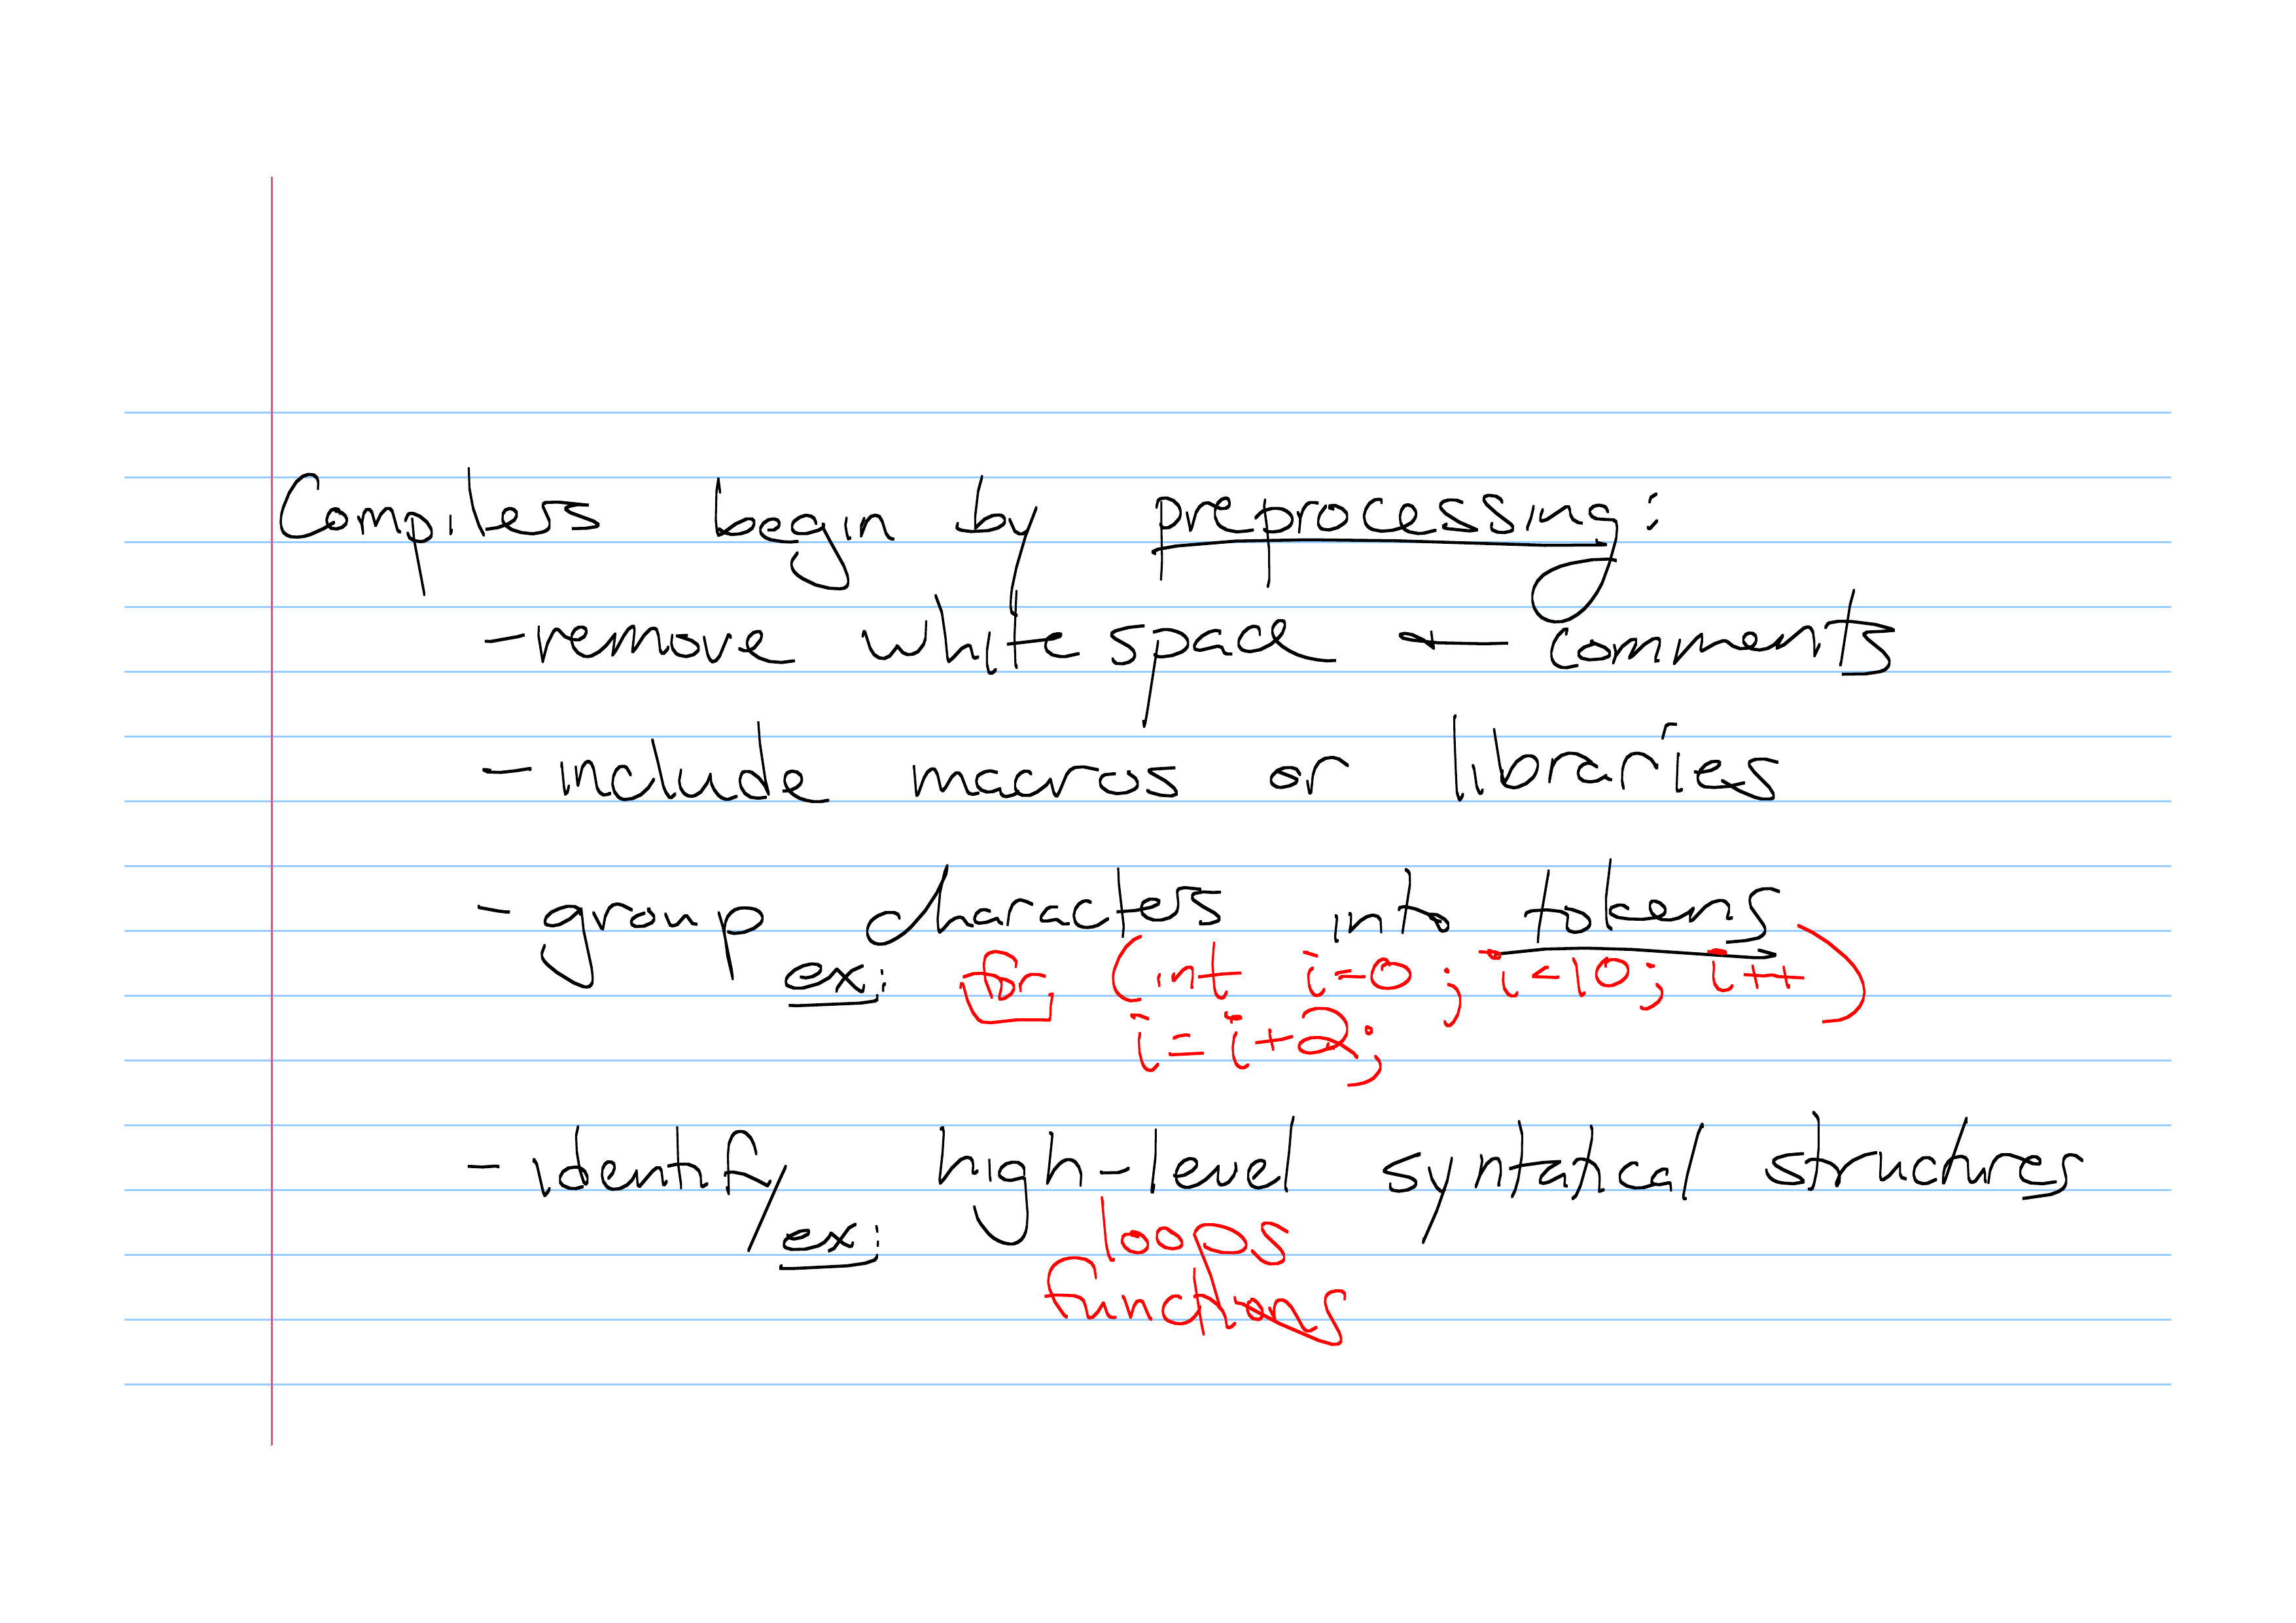 Compilers begin by preprocessing:
- remove white space ← comments
- include macros or libraries
- group characters into tokens
ex: for (int i=0; i<10; i++)
i=i+2;
- identify high-level syntatical structures
ex: loops
functions